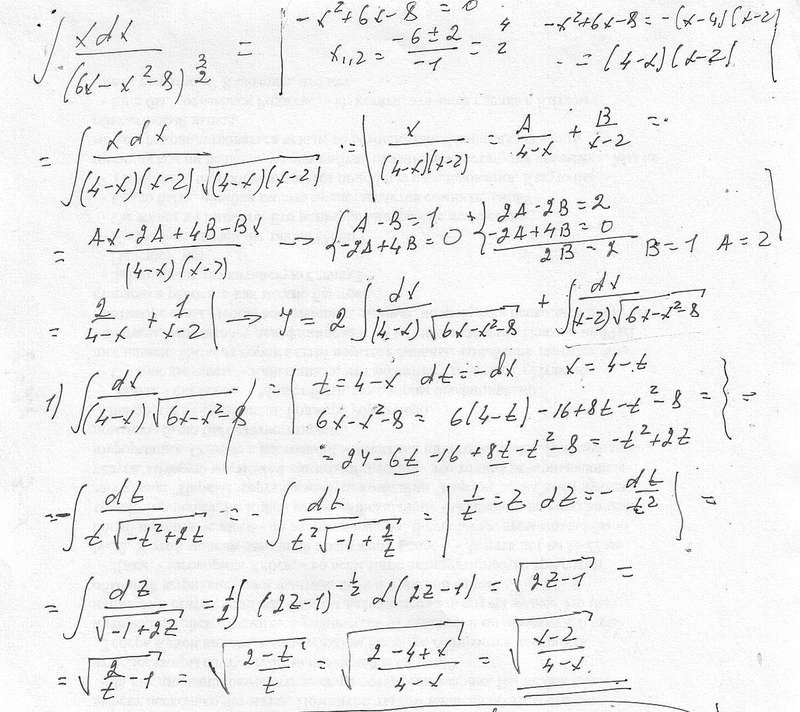 ∫ x dx / (6x - x² - 8)^(3/2) = | -x² + 6x - 8 = 0   x₁,₂ = (-6 ± 2) / -1 = 4 2   -x² + 6x - 8 = -(x-4)(x-2) = (4-x)(x-2) |
= ∫ x dx / ((4-x)(x-2)√((4-x)(x-2))) = | x / ((4-x)(x-2)) = A/(4-x) + B/(x-2) =
= (Ax - 2A + 4B - Bx) / ((4-x)(x-2)) → { A - B = 1   -2A + 4B = 0   + { 2A - 2B = 2   -2A + 4B = 0   2B = 2   B = 1   A = 2 |
= 2/(4-x) + 1/(x-2) | → 2 ∫ dx / ((4-x)√(6x-x²-8)) + ∫ dx / ((x-2)√(6x-x²-8))
1) ∫ dx / ((4-x)√(6x-x²-8)) = t = 4-x   dt = -dx   x = 4-t
6x - x² - 8 = 6(4-t) - 16 + 8t - t² - 8 = } =
= 24 - 6t - 16 + 8t - t² - 8 = -t² + 2t
= -∫ dt / (t√(-t² + 2t)) = -∫ dt / (t²√(-1 + 2/t)) | 1/t = z   dz = -dt/t² | =
= ∫ dz / √(-1 + 2z) = 1/2 ∫ (2z-1)^(-1/2) d(2z-1) = √(2z-1) =
= √(2/t - 1) = √((2-t)/t) = √((2-4+x)/(4-x)) = √((x-2)/(4-x))